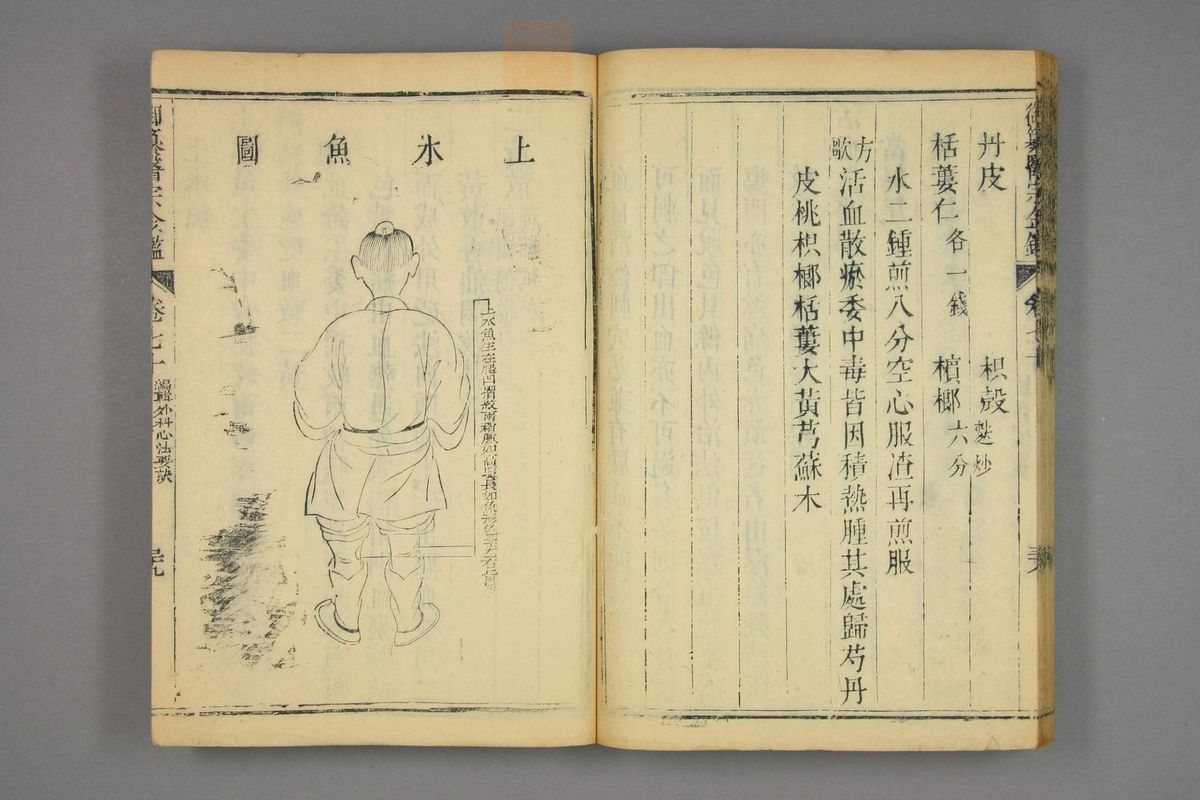 丹皮 枳殼麩炒
栝蔞仁各一錢 檳榔六分
水二鍾煎八分空心服渣再煎服
方歌 活血散瘀委中毒皆因積熱腫其處歸芍丹
皮桃枳榔栝蔞大黃芎蘇木
上水魚圖
上水魚生在腿凹摺紋兩稍腫如高 長如魚形色紫
御纂醫宗金鑑
卷七十
編輯外科心法要訣